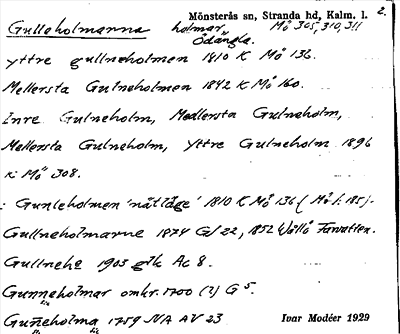 Mönsterås sn, Stranda hd, Kalm. l. 2.
Gulleholmarna holmar, Mö 305, 310, 311
Ödängla.
yttre gullneholmen 1810 K Mö 136.
Mellersta Gulneholmen 1842 K Mö 160.
Inre Gulneholm, Medlersta Gulneholm,
Mellersta Gulneholm, Yttre Gulneholm 1896
K: Mö 308.
: Gunleholmen 'nåtläge' 1810 K Mö 136 (Mö 1:185).
Gullneholmarne 1874 22, 1852 Farvatten.
Gullneho 1905 gtk Ac 8.
Gunneholmar omkr. 1700 (?) G 5.
Guneholma 1759 NA AV 23
Ivar Modéer 1929